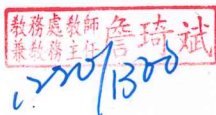 教務處教師
兼教務主任 詹琦斌
1220/1300